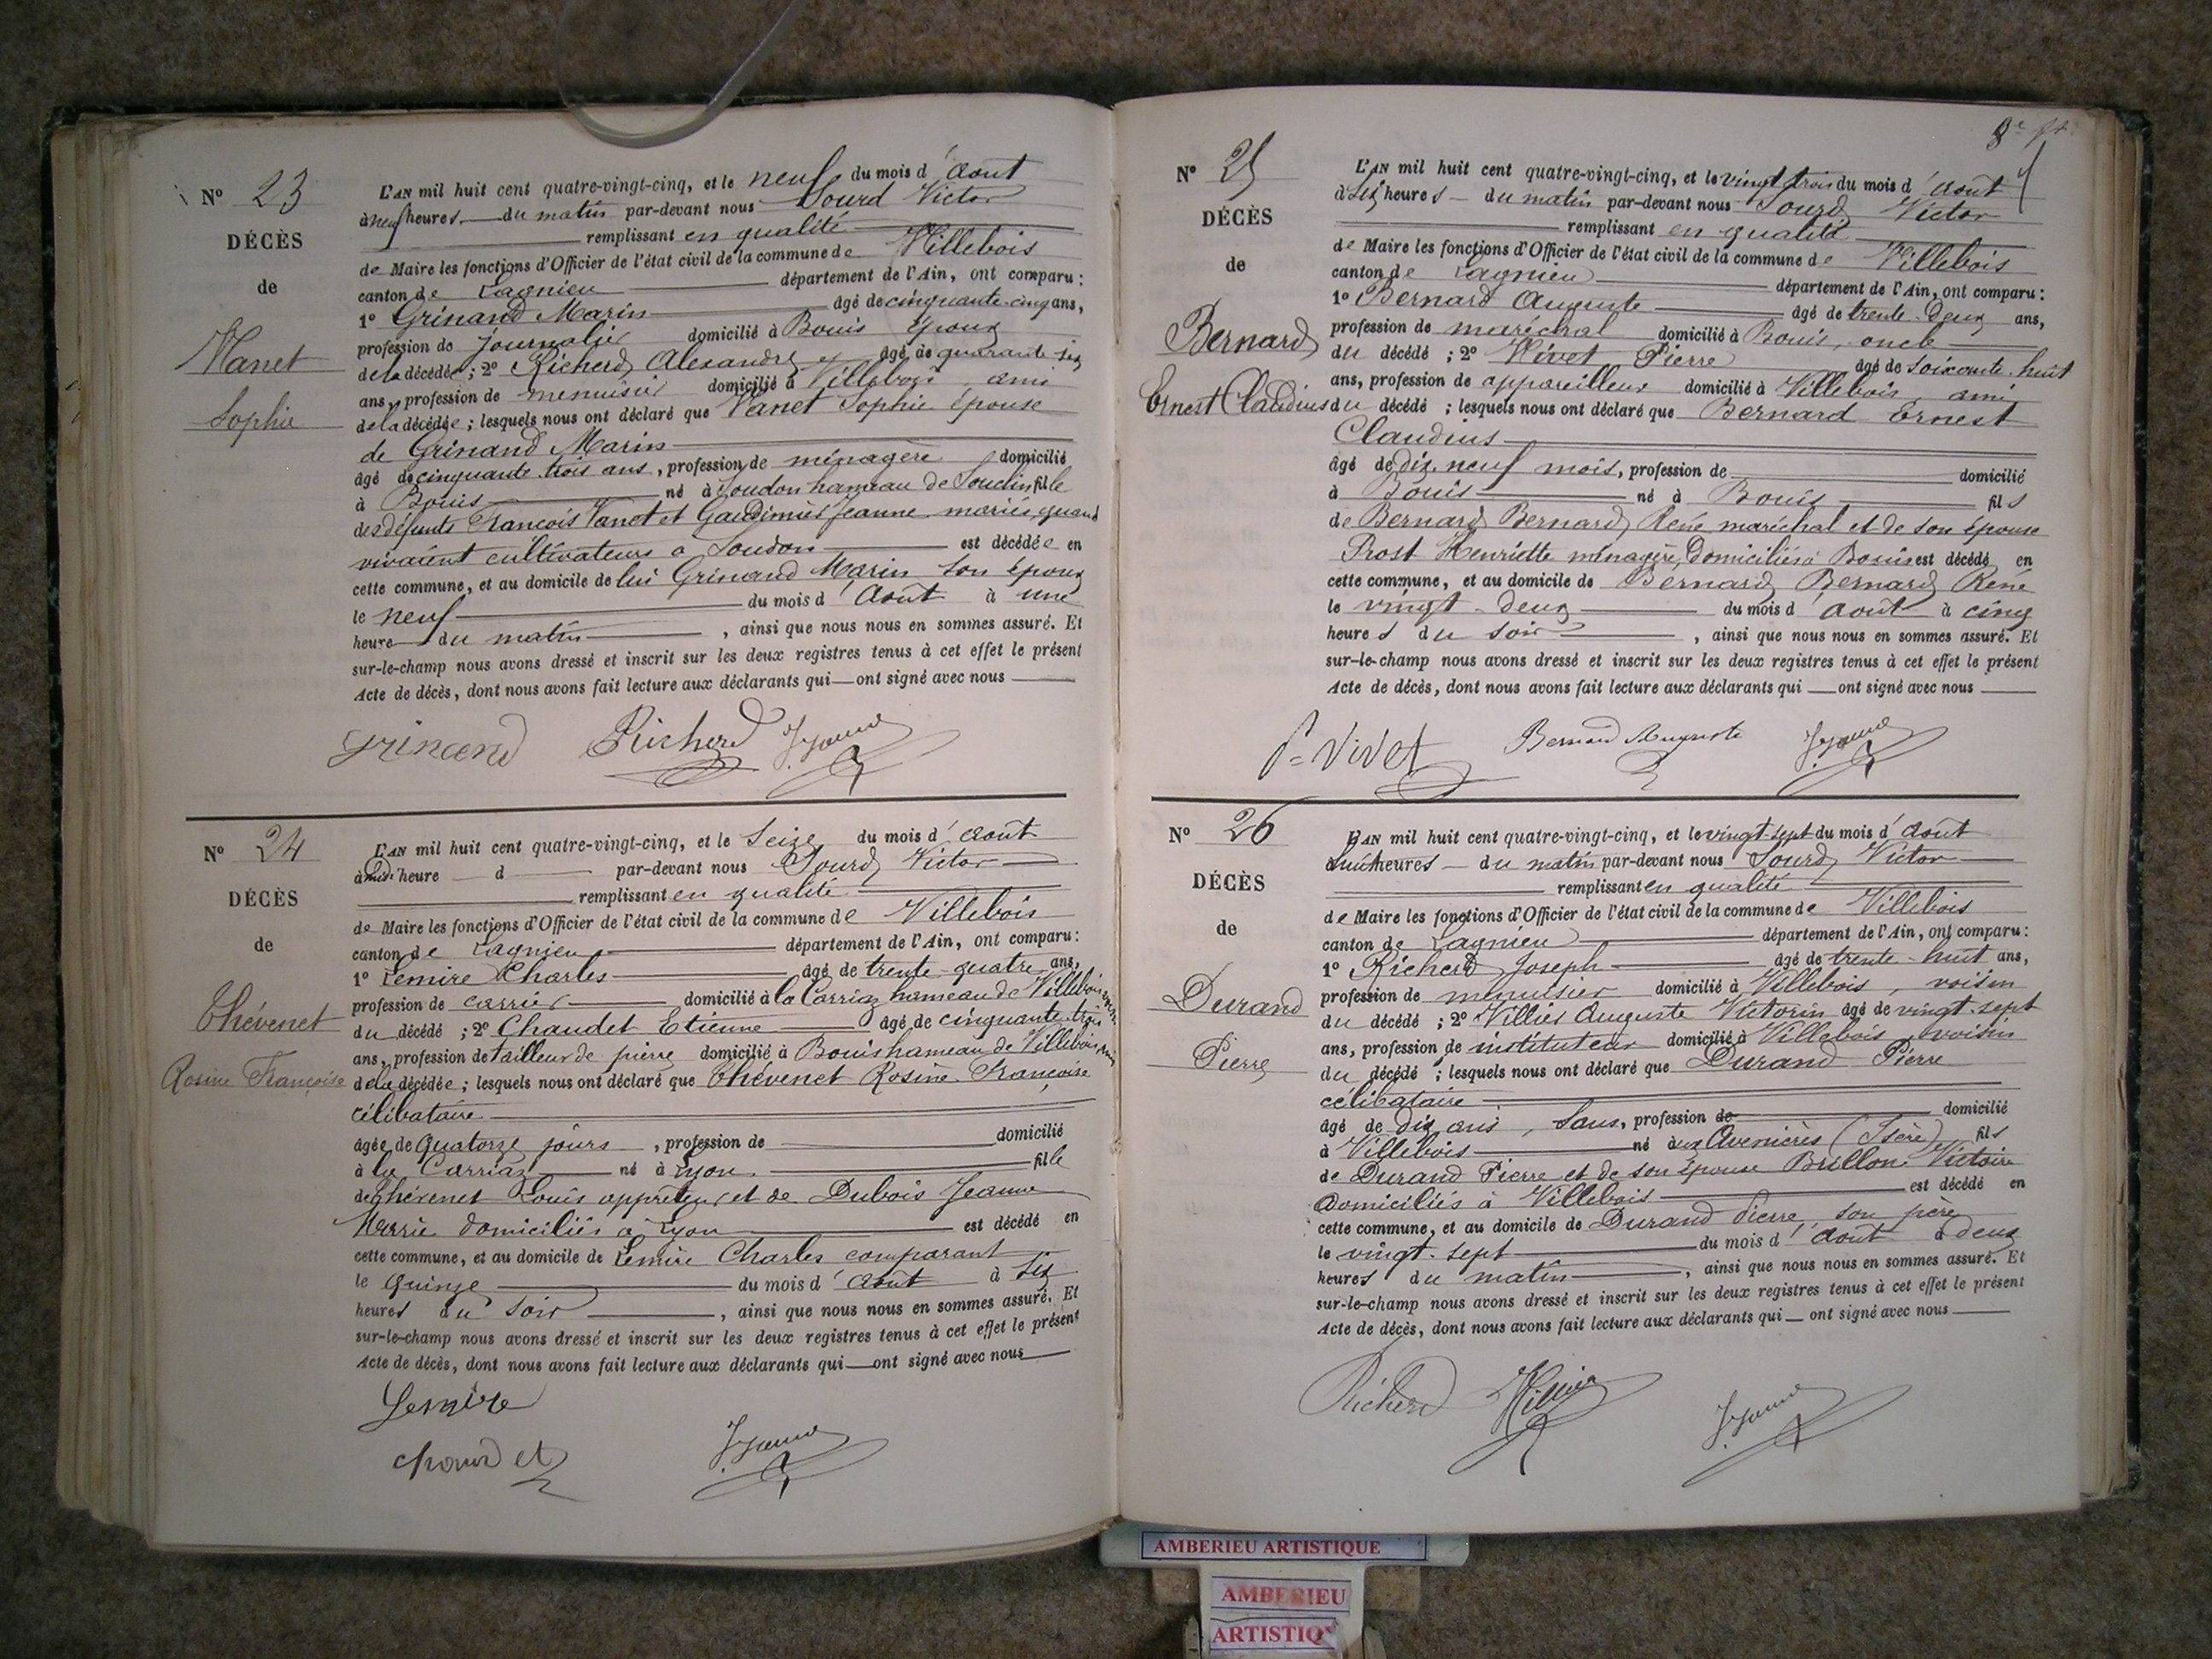 N° 23
DÉCÈS
de
Vanet
Sophie
L'AN mil huit cent quatre-vingt-cinq, et le neuf du mois d'Août
à neuf heures du matin par-devant nous Sourd Victor
remplissant en qualité
de Maire les fonctions d'Officier de l'état civil de la commune de Villebois
canton de Lagnieu département de l'Ain, ont comparu :
1° Grinand Marin âgé de cinquante-cinq ans,
profession de journalier domicilié à Bouis époux
de la décédée ; 2° Richerd Alexandre âgé de quarante-six
ans, profession de menuisier domicilié à Villebois, ami
de la décédée ; lesquels nous ont déclaré que Vanet Sophie épouse
de Grinand Marin
âgé de cinquante trois ans, profession de ménagère domicilié
à Bouis né à Soudon hameau de Souclin fille
des défunts François Vanet et Gaudimier Jeanne mariés, quand
vivaient cultivateurs à Soudon est décédée en
cette commune, et au domicile de lui Grinand Marin son époux
le neuf du mois d'Août à une
heure du matin, ainsi que nous nous en sommes assuré. Et
sur-le-champ nous avons dressé et inscrit sur les deux registres tenus à cet effet le présent
Acte de décès, dont nous avons fait lecture aux déclarants qui ont signé avec nous
Grinand Richerd
N° 24
DÉCÈS
de
Thévenet
Rosine Françoise
L'AN mil huit cent quatre-vingt-cinq, et le Seize du mois d'Août
à midi heure d par-devant nous Sourd Victor
remplissant en qualité
de Maire les fonctions d'Officier de l'état civil de la commune de Villebois
canton de Lagnieu département de l'Ain, ont comparu :
1° Lemire Charles âgé de trente-quatre ans,
profession de carrier domicilié à la Carriaz hameau de Villebois
du décédé ; 2° Chaudet Etienne âgé de cinquante-trois
ans, profession de tailleur de pierre domicilié à Bouis hameau de Villebois ami
de la décédée ; lesquels nous ont déclaré que Thévenet Rosine Françoise
célibataire
âgée de quatorze jours, profession de domicilié
à la Carriaz né à Lyon fille
de Thévenet Louis apprêteur et de Dubois Jeanne
Marie domiciliés à Lyon est décédé en
cette commune, et au domicile de Lemire Charles comparant
le quinze du mois d'Août à six
heures du soir, ainsi que nous nous en sommes assuré. Et
sur-le-champ nous avons dressé et inscrit sur les deux registres tenus à cet effet le présent
Acte de décès, dont nous avons fait lecture aux déclarants qui ont signé avec nous
Lemire
chaudet
N° 25
DÉCÈS
de
Bernard
Ernest Claudius
L'AN mil huit cent quatre-vingt-cinq, et le vingt trois du mois d'Août
à six heures du matin par-devant nous Sourd Victor
remplissant en qualité
de Maire les fonctions d'Officier de l'état civil de la commune de Villebois
canton de Lagnieu département de l'Ain, ont comparu :
1° Bernard Auguste âgé de trente-deux ans,
profession de maréchal domicilié à Bouis, oncle
du décédé ; 2° Vivet Pierre âgé de soixante-huit
ans, profession de appareilleur domicilié à Villebois, ami
du décédé ; lesquels nous ont déclaré que Bernard Ernest
Claudius
âgé de dix-neuf mois, profession de domicilié
à Bouis né à Bouis fils
de Bernard Bernard René maréchal et de son épouse
Prost Henriette ménagère, domiciliés à Bouis est décédé en
cette commune, et au domicile de Bernard Bernard René
le vingt-deux du mois d'août à cinq
heures du soir, ainsi que nous nous en sommes assuré. Et
sur-le-champ nous avons dressé et inscrit sur les deux registres tenus à cet effet le présent
Acte de décès, dont nous avons fait lecture aux déclarants qui ont signé avec nous
P= Vivet Bernard Auguste
N° 26
DÉCÈS
de
Durand
Pierre
L'AN mil huit cent quatre-vingt-cinq, et le vingt-sept du mois d'Août
à huit heures du matin par-devant nous Sourd Victor
remplissant en qualité
de Maire les fonctions d'Officier de l'état civil de la commune de Villebois
canton de Lagnieu département de l'Ain, ont comparu :
1° Richerd Joseph âgé de trente-huit ans,
profession de menuisier domicilié à Villebois, voisin
du décédé ; 2° Villier Auguste Victorin âgé de vingt-sept
ans, profession de instituteur domicilié à Villebois, voisin
du décédé ; lesquels nous ont déclaré que Durand Pierre
célibataire
âgé de dix ans, Sans, profession de domicilié
à Villebois né aux Avenières (Isère) fils
de Durand Pierre et de son épouse Brillon Victoire
domiciliés à Villebois est décédé en
cette commune, et au domicile de Durand Pierre son père
le vingt-sept du mois d'août à deux
heures du matin, ainsi que nous nous en sommes assuré. Et
sur-le-champ nous avons dressé et inscrit sur les deux registres tenus à cet effet le présent
Acte de décès, dont nous avons fait lecture aux déclarants qui ont signé avec nous
Richerd Villier
AMBERIEU ARTISTIQUE
AMBERIEU
ARTISTIQ